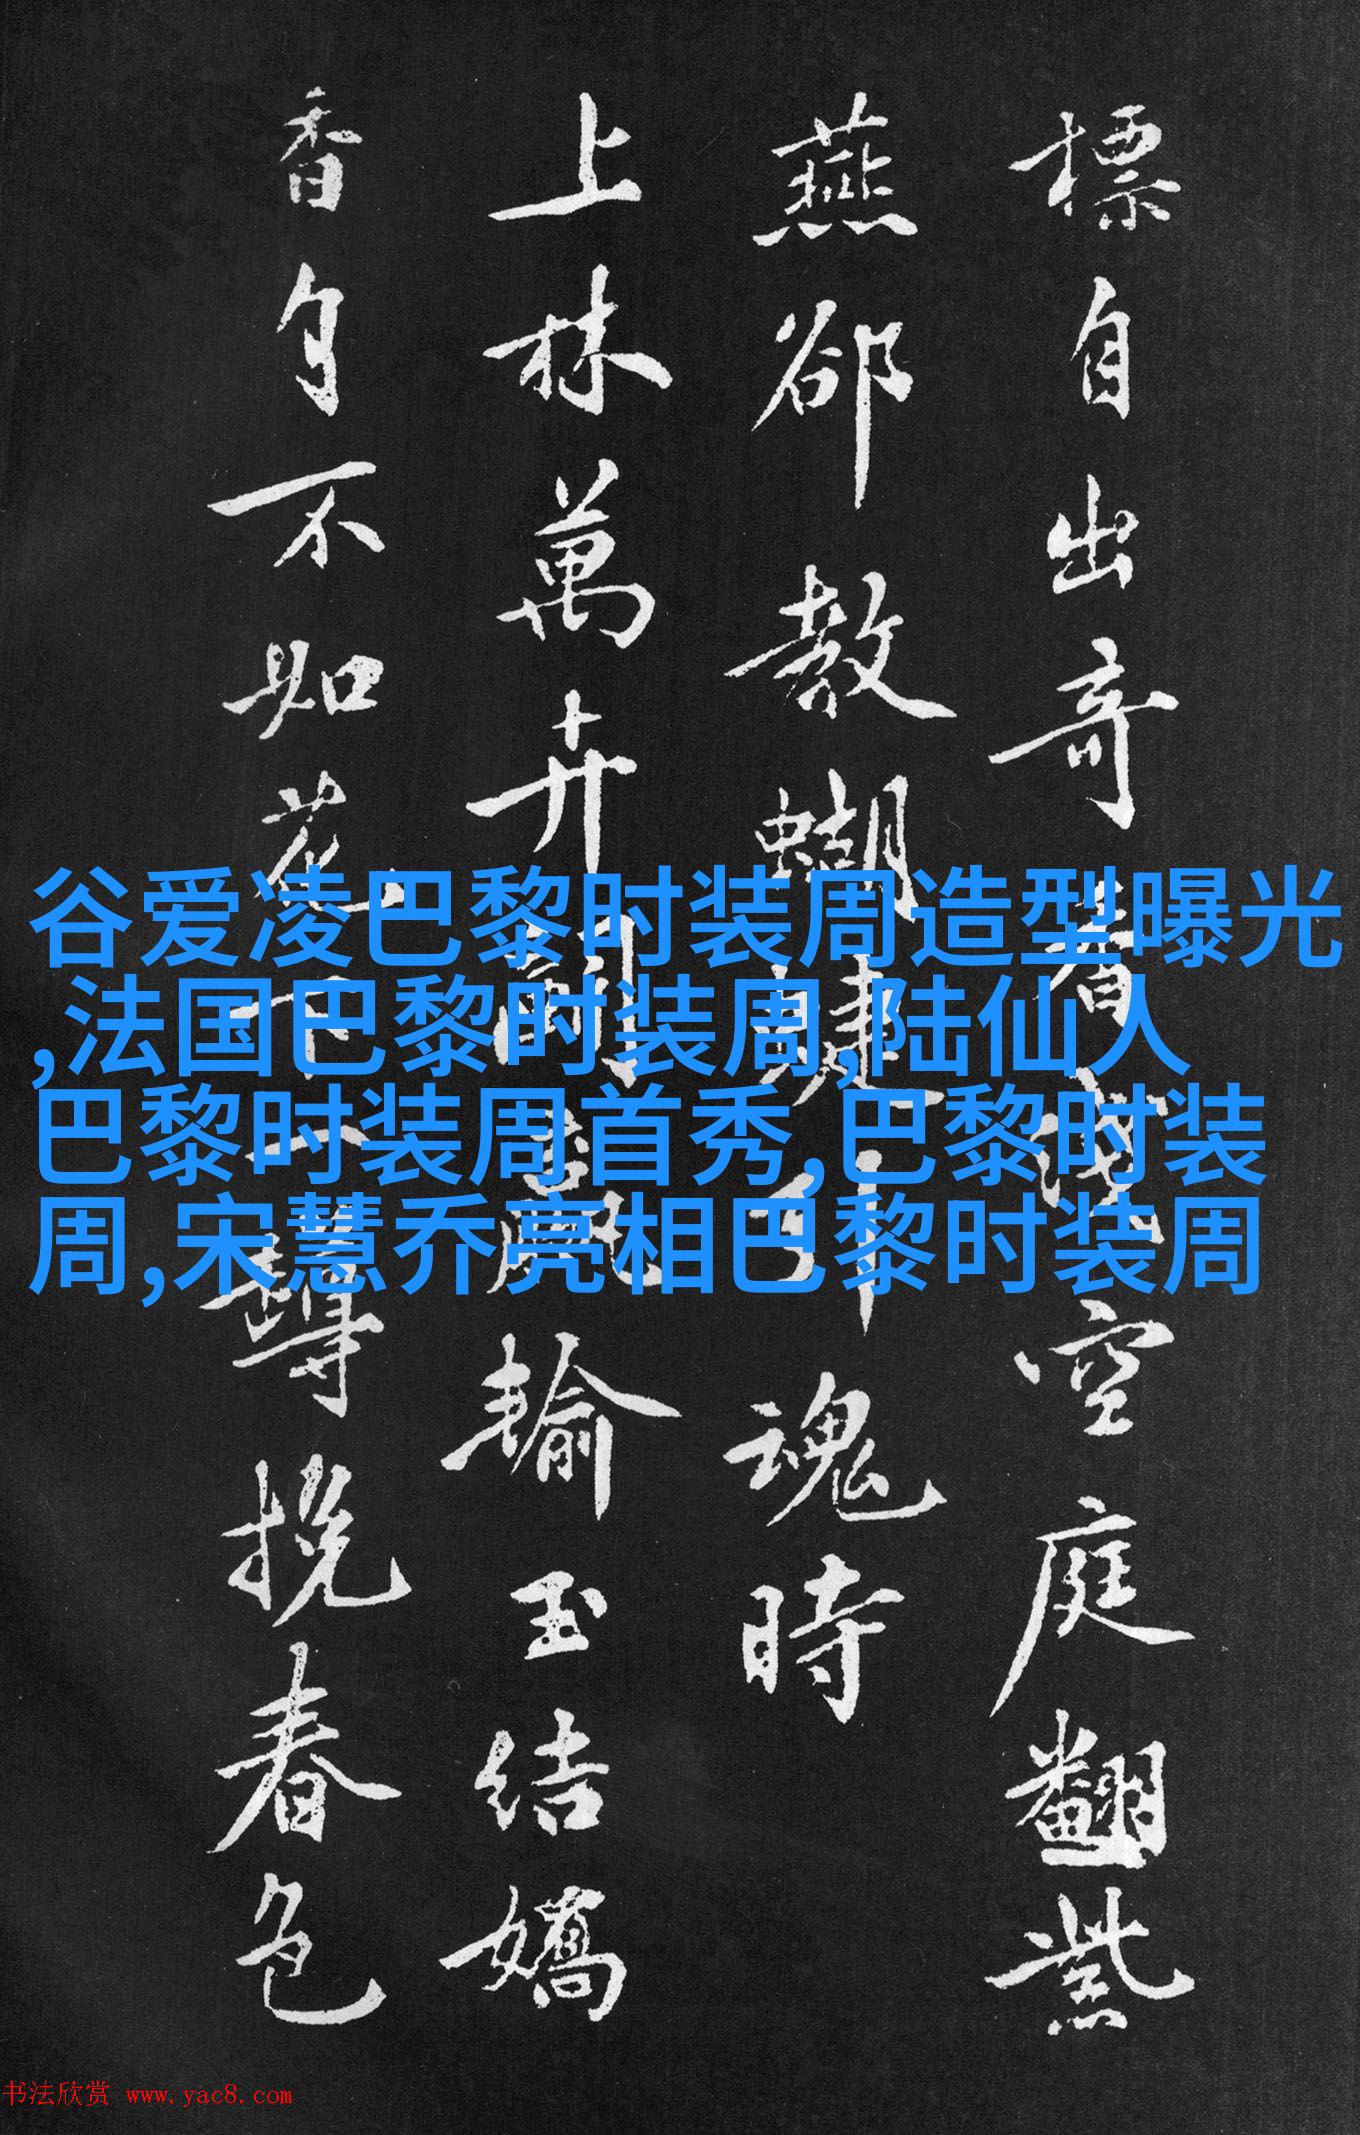 標自出奇春僊空庭翻紫
燕郤教蝴蝶引魂時
上林萬卉鬭毳飛輸玉结嬌
香自不如花下一罇挽春色
谷爱凌巴黎时装周造型曝光
,法国巴黎时装周,陆仙人
巴黎时装周首秀,巴黎时装
周,宋慧乔亮相巴黎时装周
书法欣赏 www.yac8.com